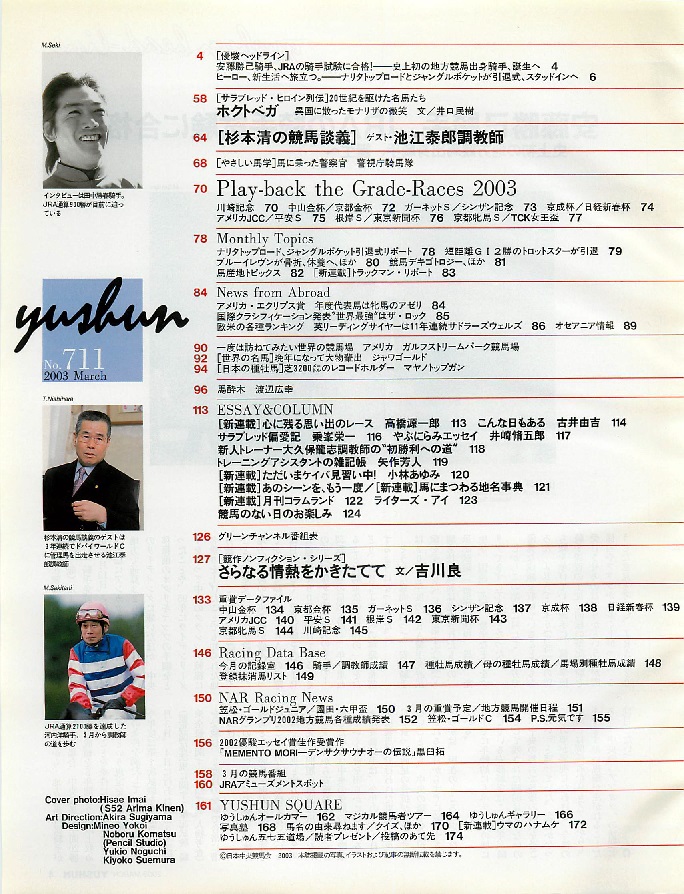 M.Seki
インタビューは田中勝春騎手。
JRA通算900勝が目前に迫っ
ている
yushun
No.711
2003 March
T.Nishihara
杉本清の競馬談義のゲストは
3年連続でドバイワールドC
に管理馬を出走させる池江泰
郎調教師
M.Sakitani
JRA通算2100勝を達成した
河内洋騎手、3月から調教師
の道を歩む
Cover photo:Hisae Imai
(S52 Arima Kinen)
Art Direction:Akira Sugiyama
Design:Mineo Yokoi
Noboru Komatsu
(Pencil Studio)
Yukio Noguchi
Kiyoko Suemura
4 [優駿ヘッドライン]
安藤勝己騎手、JRAの騎手試験に合格!──史上初の地方競馬出身騎手、誕生へ 4
ヒーロー、新生活へ旅立つ。──ナリタトップロードとジャングルポケットが引退式、スタッドインへ 6
58 [サラブレッド・ヒロイン列伝]20世紀を駆けた名馬たち
ホクトベガ 異国に散ったモナリザの微笑 文/井口民樹
64 [杉本清の競馬談義] ゲスト・池江泰郎調教師
68 [やさしい馬学]馬に乗った警察官 警視庁騎馬隊
70 Play-back the Grade-Races 2003
川崎記念 70 中山金杯/京都金杯 72 ガーネットS/シンザン記念 73 京成杯/日経新春杯 74
アメリカJCC/平安S 75 根岸S/東京新聞杯 76 京都牝馬S/TCK女王盃 77
78 Monthly Topics
ナリタトップロード、ジャングルポケット引退式リポート 78 短距離GI2勝のトロットスターが引退 79
ブルーイレヴンが骨折、休養へ、ほか 80 競馬デキゴトロジー、ほか 81
馬産地トピックス 82 [新連載]トラックマン・リポート 83
84 News from Abroad
アメリカ・エクリプス賞 年度代表馬は牝馬のアゼリ 84
国際クラシフィケーション発表“世界最強”はザ・ロック 85
欧米の各種ランキング 英リーディングサイヤーは11年連続サドラーズウェルズ 86 オセアニア情報 89
90 一度は訪ねてみたい世界の競馬場 アメリカ ガルフストリームパーク競馬場
92 [世界の名馬]晩年になって大物輩出 ジャワゴールド
94 [日本の種牡馬]芝3200㍍のレコードホルダー マヤノトップガン
96 馬酔木 渡辺広幸
113 ESSAY&COLUMN
[新連載]心に残る思い出のレース 高橋源一郎 113 こんな日もある 古井由吉 114
サラブレッド偏愛記 乗峯栄一 116 やぶにらみエッセイ 井崎脩五郎 117
新人トレーナー大久保龍志調教師の“初勝利への道” 118
トレーニングアシスタントの雑記帳 矢作芳人 119
[新連載]ただいまケイバ見習い中! 小林あゆみ 120
[新連載]あのシーンを、もう一度/[新連載]馬にまつわる地名事典 121
[新連載]月刊コラムランド 122 ライターズ・アイ 123
競馬のない日のお楽しみ 124
126 グリーンチャンネル番組表
127 [競作ノンフィクション・シリーズ]
さらなる情熱をかきたてて 文/吉川良
133 重賞データファイル
中山金杯 134 京都金杯 135 ガーネットS 136 シンザン記念 137 京成杯 138 日経新春杯 139
アメリカJCC 140 平安S 141 根岸S 142 東京新聞杯 143
京都牝馬S 144 川崎記念 145
146 Racing Data Base
今月の記録室 146 騎手/調教師成績 147 種牡馬成績/母の種牡馬成績/馬場別種牡馬成績 148
登録抹消馬リスト 149
150 NAR Racing News
笠松・ゴールドジュニア/園田・六甲盃 150 3月の重賞予定/地方競馬開催日程 151
NARグランプリ2002地方競馬各種成績発表 152 笠松・ゴールドC 154 P.S.元気です 155
156 2002優駿エッセイ賞佳作受賞作
「MEMENTO MORI─デンサクサウナオーの伝説」黒臼拓
158 3月の競馬番組
160 JRAアミューズメントスポット
161 YUSHUN SQUARE
ゆうしゅんオールカマー 162 マジカル競馬者ツアー 164 ゆうしゅんギャラリー 166
写真塾 168 馬名の由来尋ねます/クイズ、ほか 170 [新連載]ウマのハナムケ 172
ゆうしゅん五七五道場/読者プレゼント/投稿のあて先 174
©日本中央競馬会 2003 本誌掲載の写真、イラストおよび記事の無断転載を禁じます。